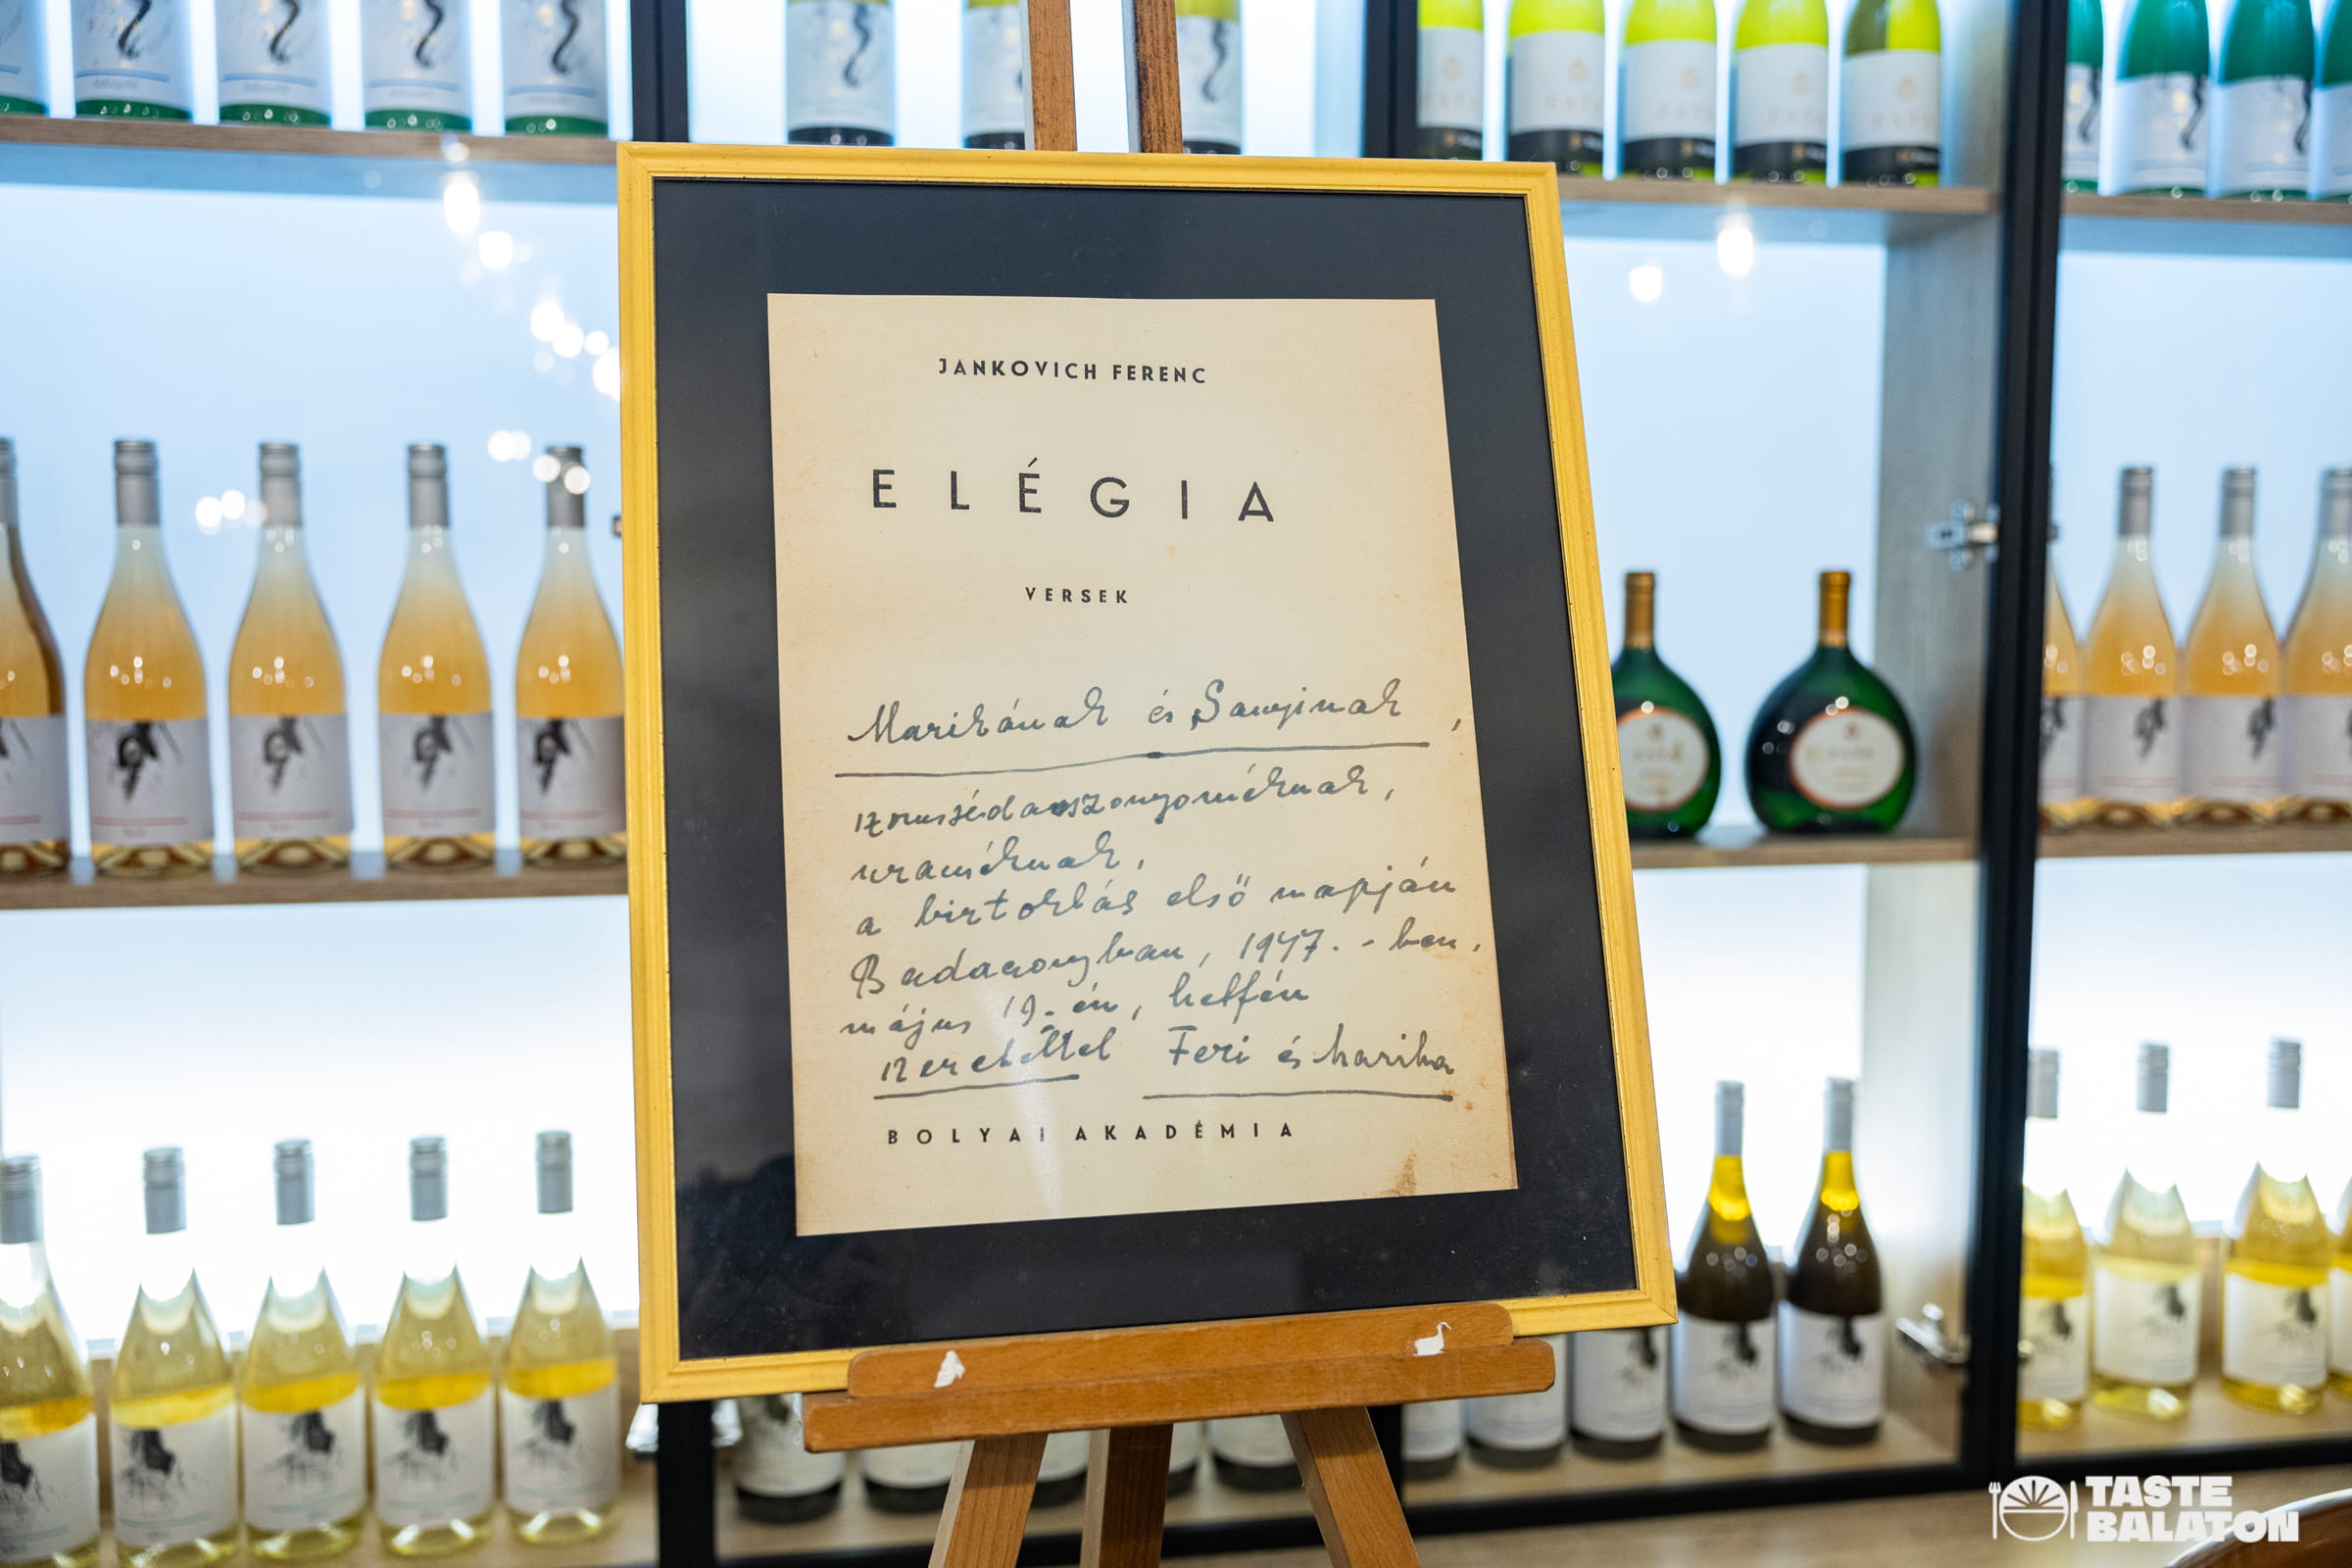 JANKOVICH FERENC
ELÉGIA
VERSEK
Marikának és Sanyinak,
szomszédasszonyoméknak,
uraméknak,
a birtoklás első napján
Badacsonyban, 1947.-ben,
május 19.-én, hétfőn
szeretettel Feri és Marika
BOLYAI AKADÉMIA
TASTE
BALATON